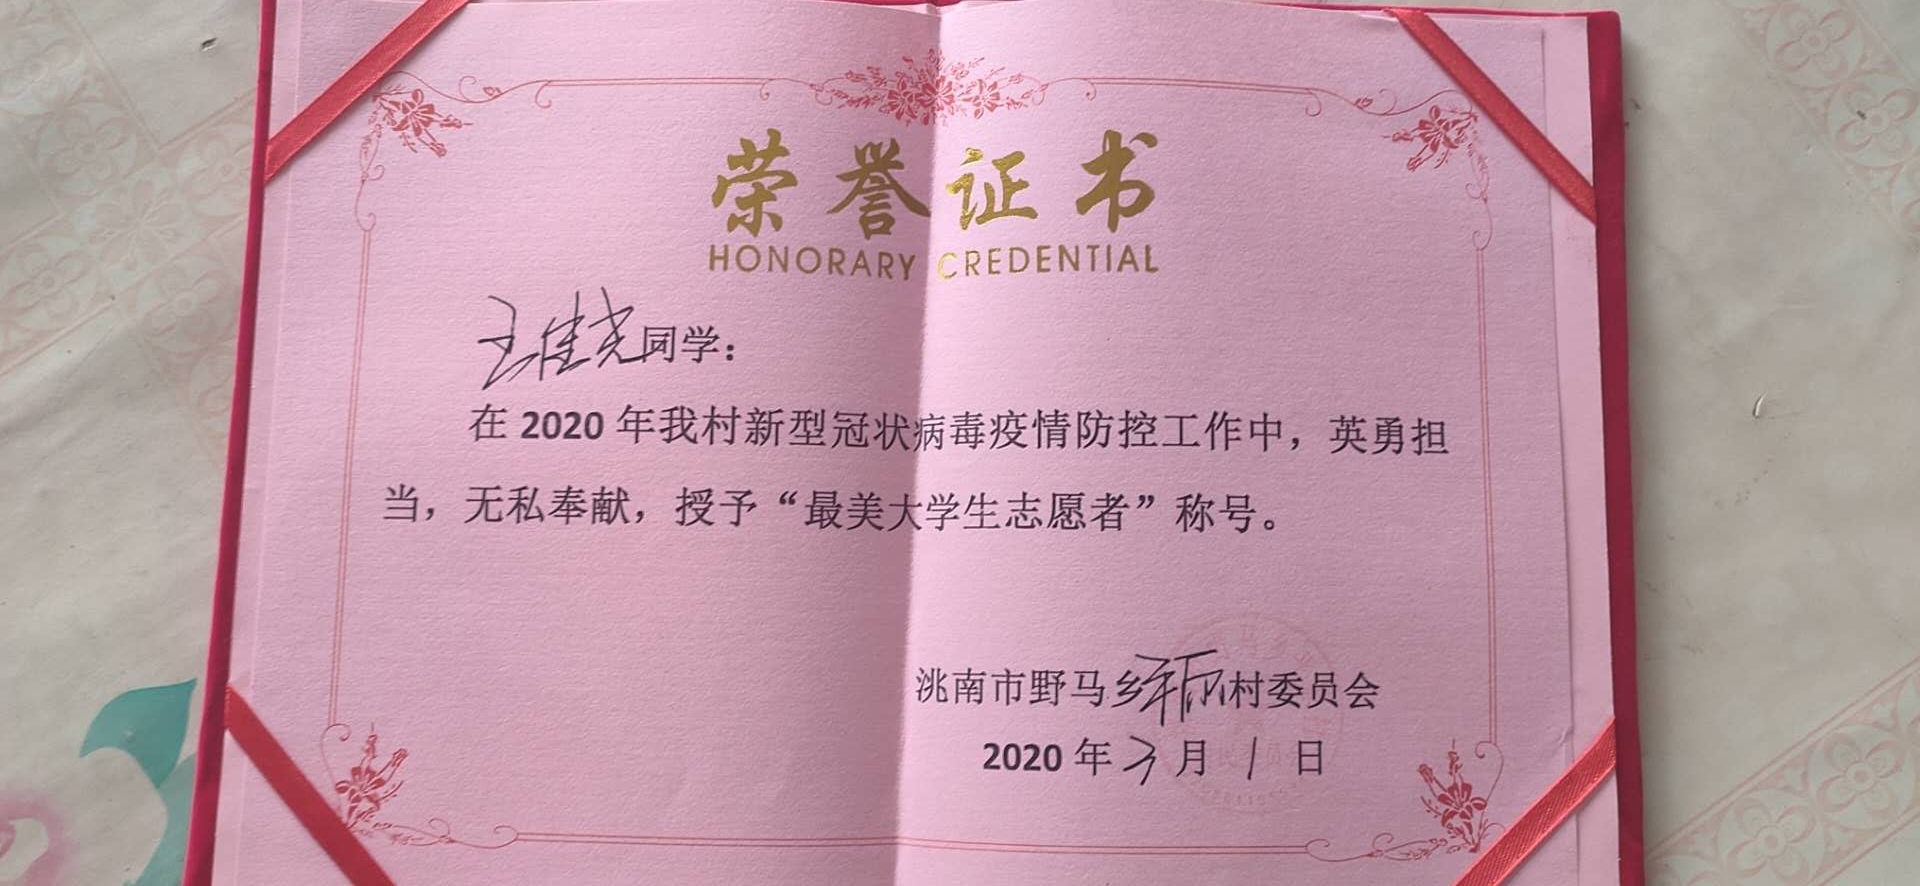 荣誉证书
HONORARY CREDENTIAL
王佳尧同学：
在 2020 年我村新型冠状病毒疫情防控工作中，英勇担
当，无私奉献，授予“最美大学生志愿者”称号。
洮南市野马乡村委员会
2020 年 3 月 1 日